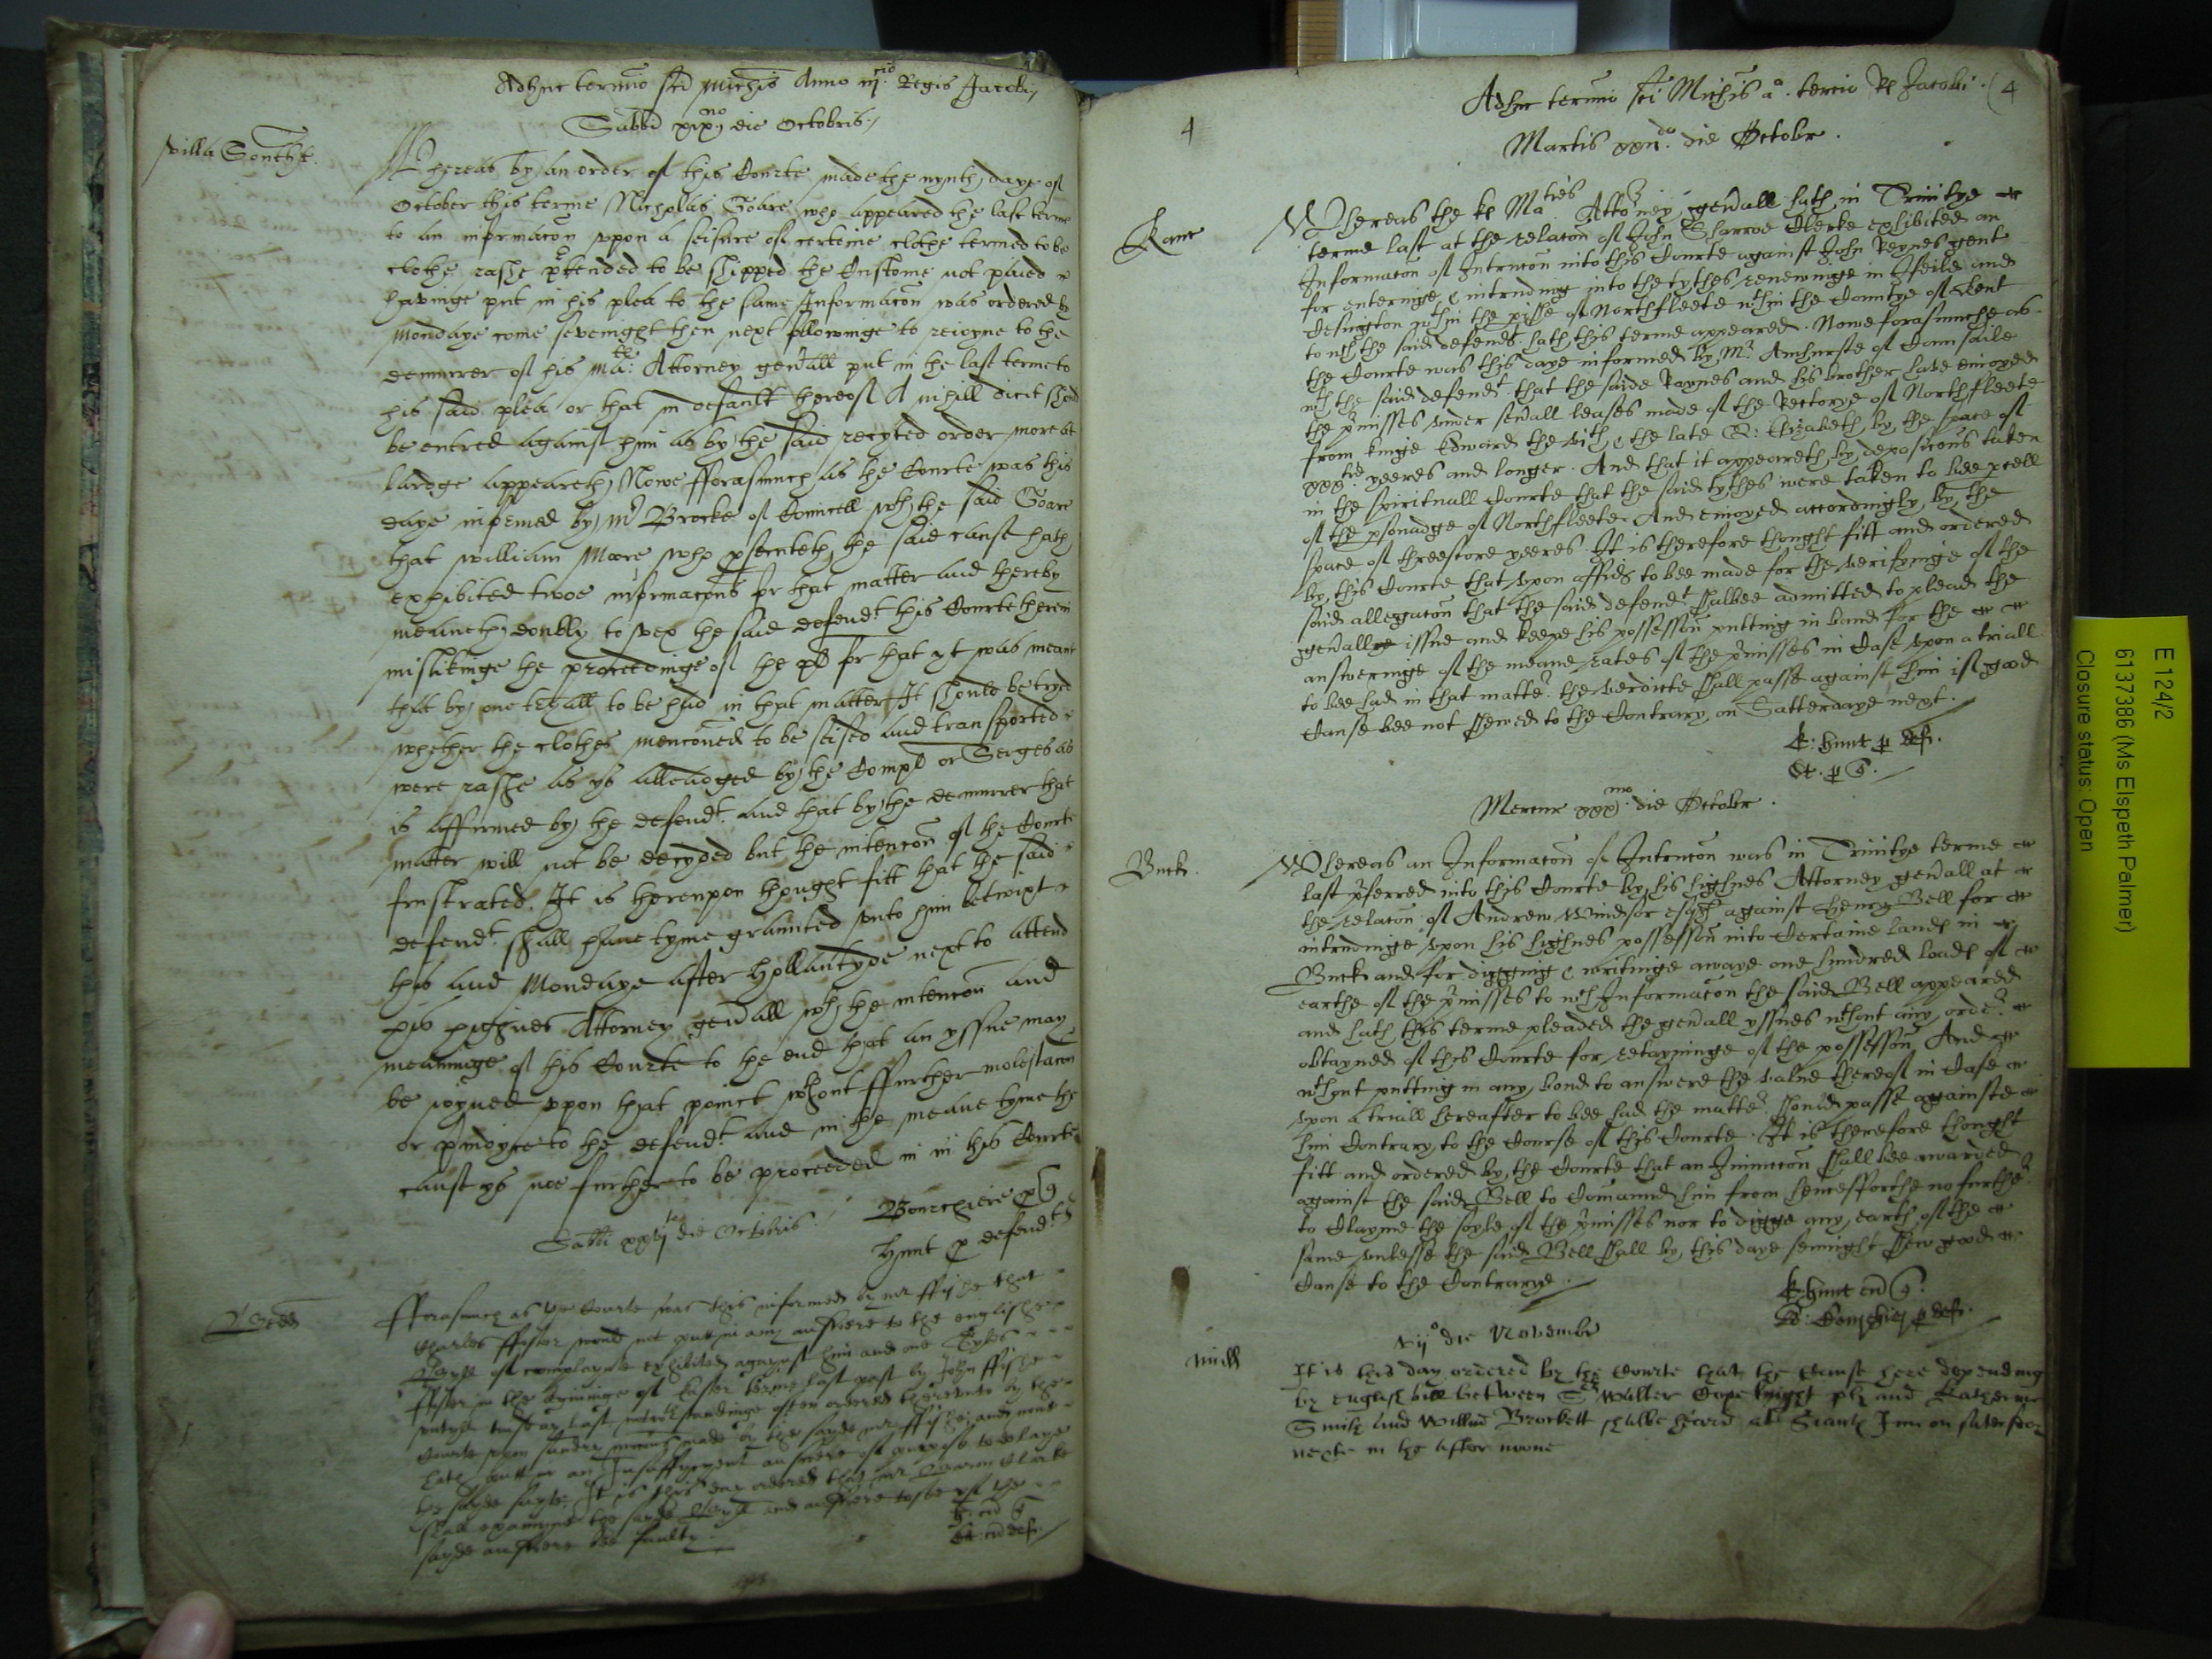 Adhuc termino sci Michis Anno iij cio Regis Jacobi
Sabbi xix no die Octobris
villa Southt.
Whereas by an order of this Courte made the nynth daye of
October this terme Nicholas Goare who appeared the last terme
to an informacon vpon a seisure of certeine clothe termed to be
clothe rashe ptended to be shipped the Custome not paied
havinge put in his plea to the same Informacon was ordered by
Mondaye come sevenight then next followinge to reioyne to the
demurrer of his Mats Attorney genall put in the last terme to
his said plea or that in default thereof A nihill dicit should
be entred against him as by the said recyted order more at
lardge appeareth Nowe fforasmuch as the Courte was this
daye informed by mr Brocke of Councell wth the said Goare
that william Moore who psecuteth the said cause hath
exhibited twoe informacons for that matter and thereby
meaneth doubly to vex the said defendt this Courte therein
mislikinge the proceedinge of the pl for that yt was meant
that by one tryall to be had in that matter It should be tryed
whether the clothes menconed to be seised and transported
were rashe as ys alleadged by the Compl or Serges as
is affirmed by the defendt. and that by the demurrer that
matter will not be decyded but the intencon of the Courte
frustrated. It is thereupon thought fitt that the said
defendt. shall have tyme graunted vnto him betwixt
this and Mondaye after hollantyde next to attend
his highnes Attorney genall wth the intencon and
meaninge of this Courte to the end that an yssue may
be ioyned vpon that poinct wthout ffurther molestacon
or preiudyce to the defendt. and in the meane tyme the
cause ys noe further to be proceeded in in this Courte
Bourchiere p Q
Hunt p defendt
Sabbi xxvj to die Octobris
fforasmuch as the Courte was this informed by mr ffishe that
Charles ffoster would not putt in any answere to the englishe
of complaynte exhibited against him and one
ffoster in the of Easter terme last past by John ffishe
last notwthstandinge often ordered therevnto by the
Courte vpon sundry made by the sayde mr ffishe and nowe
hath putt in an Insuffycyent answere of purpose to delaye
the sayde suyte. It is this day ordered that mr Clarke
shall examyne the sayde and answere to see yf the
sayde answere bee faulty
4
Adhuc termino sci Michis a o. tercio R Jacobi. (4
Martis xxij do. die Octobr.
Kanc
Whereas the k Ma ties Attorney genall hath in Trinitye
terme last at the relacon of John Sharroe Clerke exhibited an
Informacon of Intrucon into this Courte against John Reynes gent
for enteringe & intrudinge into the tythes renewinge in Ifeild and
Desington wthin the pishe of Northfleete wthin the Countye of Kent
to wch the said defendt. hath this terme appeared. Nowe forasmuche as
the Courte was this daye informed by Mr Amhurste of Counsaile
wth the said defendt that the saide Raynes and his brother have enioyed
the pmisses vnder seuall leases made of the Rectorye of Northfleete
from kinge Edward the vith & the late Q: Elizabeth by the space of
xxx tie yeeres and longer. And that it appeareth by deposicons taken
in the spirituall Courte that the said tythes were taken to bee pcell
of the psonadge of Northfleete. And enioyed accordingly by the
space of threescore yeeres. It is therefore thought fitt and ordered
by this Courte that vpon affid to bee made for the verifyinge of the
said allegacon that the said defendt shalbee admitted to plead the
genall issue and keepe his possession putting in band for the
answeringe of the meane rates of the pmisses in Case vpon a triall
to bee had in that matter. the verdicte shall passe against him if good
Cause bee not shewed to the Contrary on Satterdaye next.
k: hunt p def.
Mercur xxx mo die Octobr.
Buck.
Whereas an Informacon of Intrucon was in Trinitye terme
last pferred into this Courte by his highnes Attorney genall at
the relacon of Andrew Windsor esqr against Henry Bell for
intrudinge vpon his highnes possession into Certaine lands in
Buck and for digging & writinge awaye one hundred loads of
earthe of the pmisses to wch Informacon the said Bell appeared
and hath this terme pleaded the genall yssues wthout any order
obtayned of this Courte for retayninge of the possession And
wthout putting in any bond to answere the value thereof in Case
vpon a triall hereafter to bee had the matter should passe againste
him Contrary to the Course of this Courte. It is therefore thought
fitt and ordered by the Courte that an Iniuncon shall bee awarded
against the said Bell to Comaund him from hencefforthe no further
to Clayme the soyle of the pmisses nor to digge any earth of the
same vnlesse the said Bell shall by this daye sennight shew good
Cause to the Contrarye.
k: hunt
xij o die Novembr
Midd
It is this day ordered by the Courte that the Cause here depending
by english bill between Sr Walter Cope knight plt and Katherine
Smith and Willm Brockett shalbe heard at Graies Inn on saterday
nexte in the after noone
E 124/2
6137386 (Ms Elspeth Palmer)
Closure status: Open